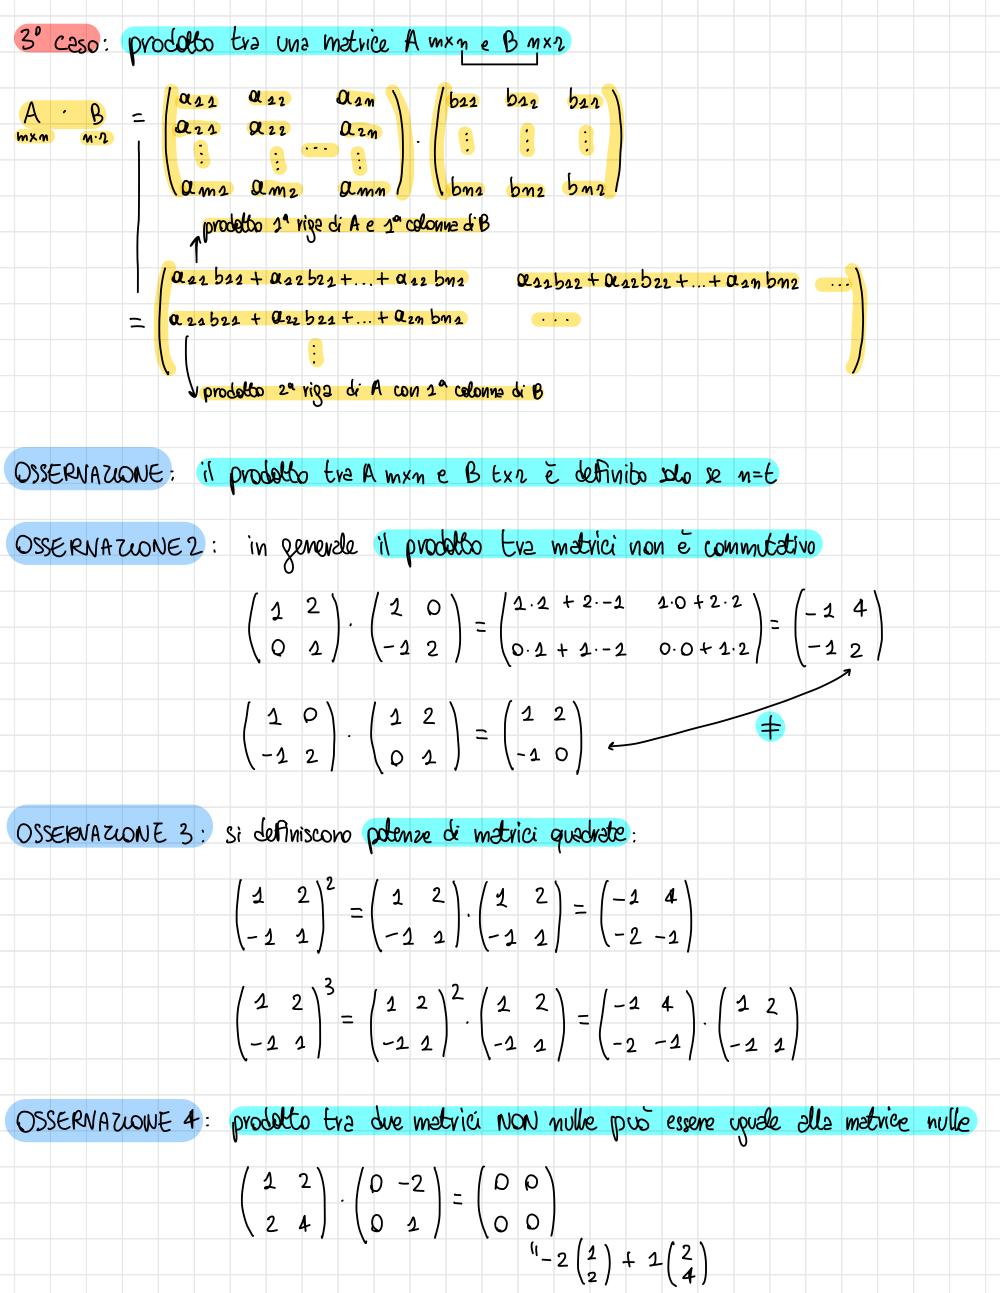 3° caso: prodotto tra una matrice A m×n e B n×r
A · B = (a11 a12 a1n) · (b11 b12 b1r)
m×n n·r (a21 a22 a2n) (⋮ ⋮ ⋮)
(⋮ ⋮ ... ⋮)
(am1 am2 amn) (bn1 bn2 bnr)
prodotto 1ª riga di A e 1ª colonna di B
(a11b11 + a12b21 + ... + a12bn1 a11b12 + a12b22 + ... + a1nbn2 ...)
= (a21b21 + a22b21 + ... + a2nbn1 ....)
⋮
prodotto 2ª riga di A con 1ª colonna di B
OSSERVAZIONE: il prodotto tra A m×n e B t×r è definito solo se n=t
OSSERVAZIONE 2: in generale il prodotto tra matrici non è commutativo
(1 2) · (1 0) = (1·1 + 2·-1 1·0 + 2·2) = (-1 4)
(0 1) (-1 2) (0·1 + 1·-1 0·0 + 1·2) (-1 2)
(1 0) · (1 2) = (1 2) ≠
(-1 2) (0 1) (-1 0)
OSSERVAZIONE 3: si definiscono potenze di matrici quadrate:
(1 2)² = (1 2) · (1 2) = (-1 4)
(-1 1) (-1 1) (-1 1) (-2 -1)
(1 2)³ = (1 2)² · (1 2) = (-1 4) · (1 2)
(-1 1) (-1 1) (-1 1) (-2 -1) (-1 1)
OSSERVAZIONE 4: prodotto tra due matrici NON nulle può essere uguale alla matrice nulla
(1 2) · (0 -2) = (0 0)
(2 4) (0 1) (0 0)
" -2 (1) + 1 (2)
(2) (4)